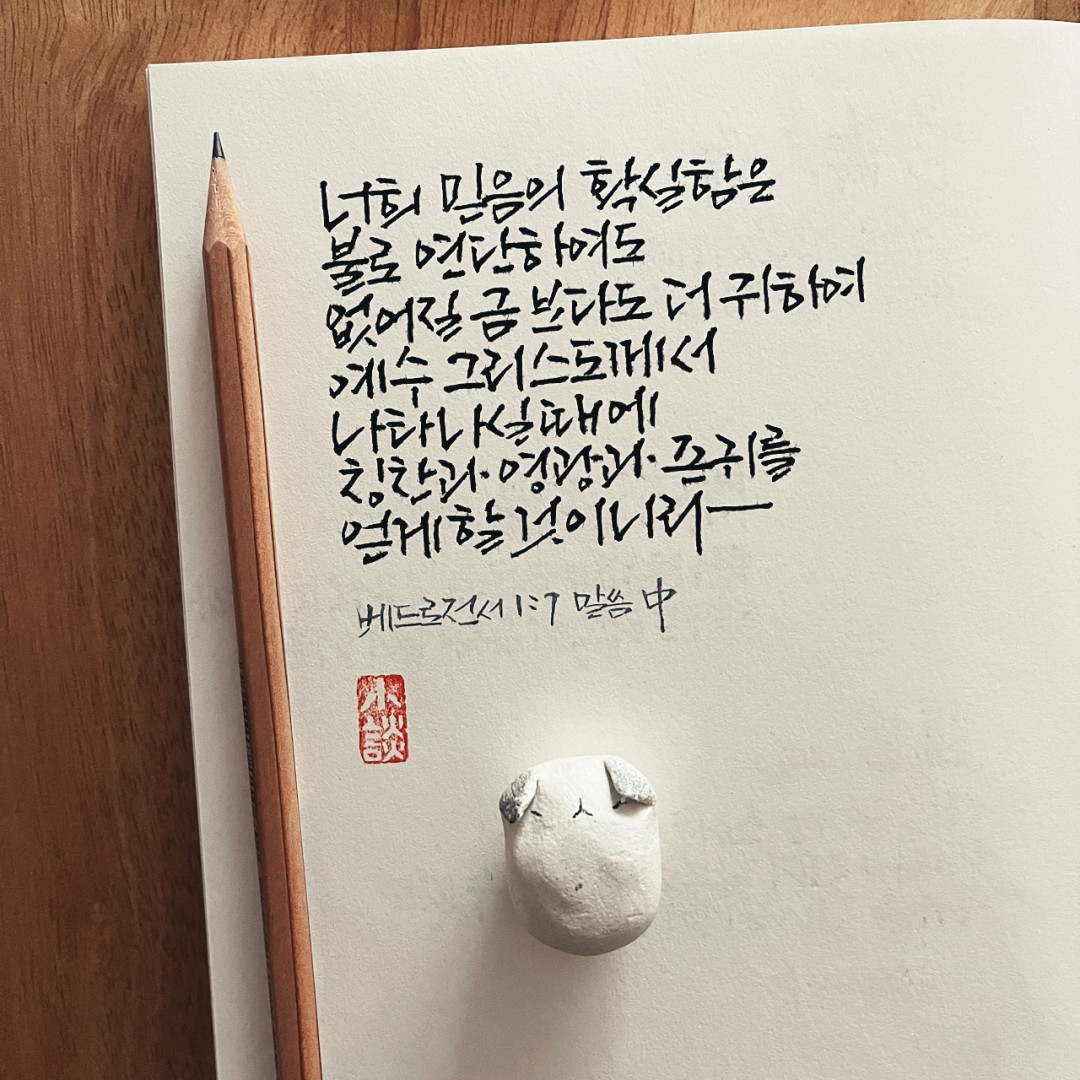 너희 믿음의 확실함은
불로 연단하여도
없어질 금 보다도 더 귀하여
예수 그리스도께서
나타나실 때에
칭찬과·영광과·존귀를
얻게 할 것이니라
베드로전서 1:7 말씀 中
小談